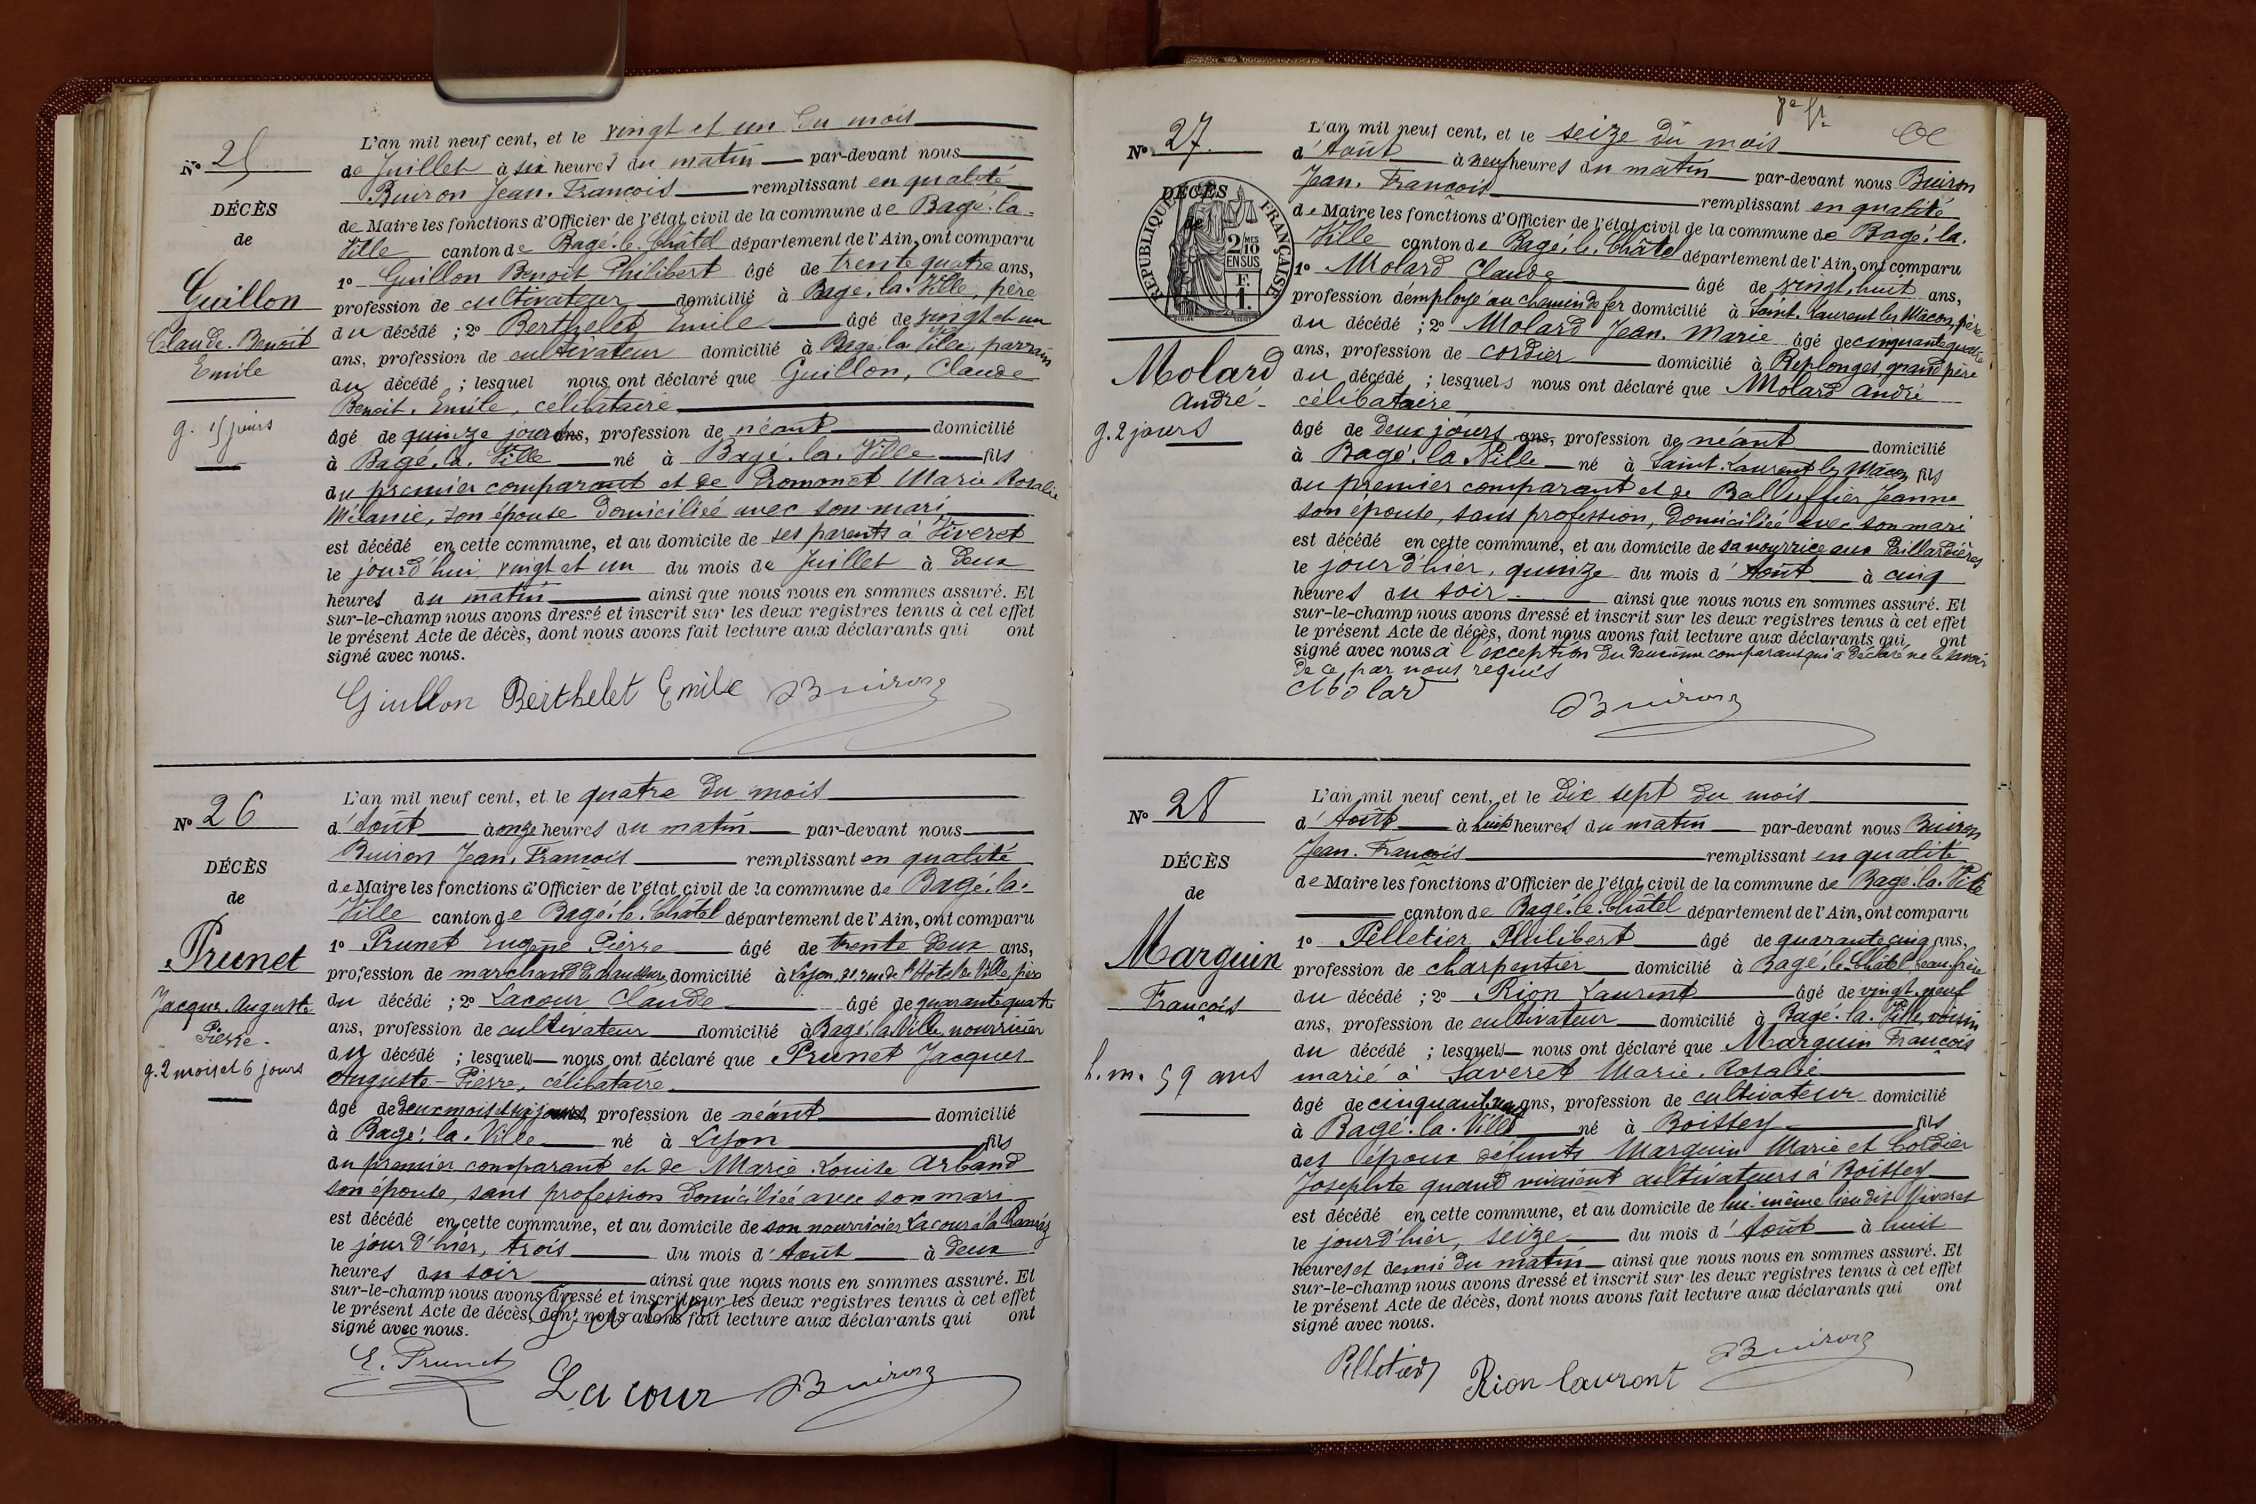 N° 25
DÉCÈS
de
Guillon
Claude. Benoit
Emile
g. 15 jours
L'an mil neuf cent, et le vingt et un du mois
de Juillet à six heures du matin par-devant nous
Buiron Jean. François remplissant en qualité
de Maire les fonctions d'Officier de l'état civil de la commune de Bagé-la-
Ville canton de Bagé-le-Châtel département de l'Ain, ont comparu
1° Guillon Benoit Philibert âgé de trente quatre ans,
profession de cultivateur domicilié à Bagé-la-Ville, père
du décédé ; 2° Berthelet Emile âgé de vingt et un
ans, profession de cultivateur domicilié à Bagé-la-Ville, parrain
du décédé ; lesquel nous ont déclaré que Guillon, Claude
Benoit. Emile, célibataire
âgé de quinze jours ans, profession de néant domicilié
à Bagé-la-Ville né à Bagé-la-Ville fils
du premier comparant et de Promonet Marie Rosalie
Mélanie, son épouse domiciliée avec son mari
est décédé en cette commune, et au domicile de ses parents à Viveret
le jourd'hui, vingt et un du mois de Juillet à deux
heures du matin ainsi que nous nous en sommes assuré. Et
sur-le-champ nous avons dressé et inscrit sur les deux registres tenus à cet effet
le présent Acte de décès, dont nous avons fait lecture aux déclarants qui ont
signé avec nous.
Guillon Berthelet Emile Buiron
N° 26
DÉCÈS
de
Prunet
Jacques. Auguste
Pierre.
g. 2 mois et 6 jours
L'an mil neuf cent, et le quatre du mois
d'Août à onze heures du matin par-devant nous
Buiron Jean. François remplissant en qualité
de Maire les fonctions d'Officier de l'état civil de la commune de Bagé-la-
Ville canton de Bagé-le-Châtel département de l'Ain, ont comparu
1° Prunet Eugène Pierre âgé de trente deux ans,
profession de marchand de chaussures domicilié à Lyon, 31 rue de l'Hôtel de Ville, père
du décédé ; 2° Lacour Claude âgé de quarante quatre
ans, profession de cultivateur domicilié à Bagé-la-Ville, nourricier
du décédé ; lesquels nous ont déclaré que Prunet Jacques
Auguste-Pierre, célibataire
âgé de deux mois et six jours, profession de néant domicilié
à Bagé-la-Ville né à Lyon fils
du premier comparant et de Marie-Louise Arband
son épouse, sans profession domiciliée avec son mari
est décédé en cette commune, et au domicile de son nourricier Lacour à la
le jourd'hier, trois du mois d'Août à deux
heures du soir ainsi que nous nous en sommes assuré. Et
sur-le-champ nous avons dressé et inscrit sur les deux registres tenus à cet effet
le présent Acte de décès, dont nous avons fait lecture aux déclarants qui ont
signé avec nous.
E. Prunet Lacour Buiron
N° 27.
DÉCÈS
de
RÉPUBLIQUE FRANÇAISE
2/10MES
EN SUS
F.
1
Molard
André.
g. 2 jours
L'an mil neuf cent, et le seize du mois
d'Août à neuf heures du matin par-devant nous Buiron
Jean. François remplissant en qualité
de Maire les fonctions d'Officier de l'état civil de la commune de Bagé-la-
Ville canton de Bagé-le-Châtel département de l'Ain, ont comparu
1° Molard Claude âgé de vingt huit ans,
profession d'employé au chemin de fer domicilié à Saint-Laurent les Mâcon, père
du décédé ; 2° Molard Jean. Marie âgé de cinquante quatre
ans, profession de cordier domicilié à Replonges, grand père
du décédé ; lesquels nous ont déclaré que Molard André
célibataire
âgé de deux jours ans, profession de néant domicilié
à Bagé-la-Ville né à Saint-Laurent les Mâcon fils
du premier comparant et de Balluffier Jeanne
son épouse, sans profession, domiciliée avec son mari
est décédé en cette commune, et au domicile de sa nourrice aux Paillardières
le jourd'hier, quinze du mois d'Août à cinq
heures du soir ainsi que nous nous en sommes assuré. Et
sur-le-champ nous avons dressé et inscrit sur les deux registres tenus à cet effet
le présent Acte de décès, dont nous avons fait lecture aux déclarants qui ont
signé avec nous à l'exception du deuxième comparant qui a déclaré ne le savoir
de ce par nous requis
Molard Buiron
N° 28
DÉCÈS
de
Marguin
François
h. m. 59 ans
L'an mil neuf cent, et le dix sept du mois
d'Août à huit heures du matin par-devant nous Buiron
Jean. François remplissant en qualité
de Maire les fonctions d'Officier de l'état civil de la commune de Bagé-la-Ville
canton de Bagé-le-Châtel département de l'Ain, ont comparu
1° Pelletier Philibert âgé de quarante cinq ans,
profession de charpentier domicilié à Bagé-le-Châtel, beau frère
du décédé ; 2° Rion Laurent âgé de vingt-neuf
ans, profession de cultivateur domicilié à Bagé-la-Ville, voisin
du décédé ; lesquels nous ont déclaré que Marguin François
marié à Saveret Marie. Rosalie
âgé de cinquante neuf ans, profession de cultivateur domicilié
à Bagé-la-Ville né à Boissey fils
des époux défunts Marguin Marie et Cordier
Josephte quand vivaient cultivateurs à Boissey
est décédé en cette commune, et au domicile de lui-même lieu dit Viveret
le jourd'hier, seize du mois d'Août à huit
heures et demie du matin ainsi que nous nous en sommes assuré. Et
sur-le-champ nous avons dressé et inscrit sur les deux registres tenus à cet effet
le présent Acte de décès, dont nous avons fait lecture aux déclarants qui ont
signé avec nous.
Pelletier Rion laurent Buiron